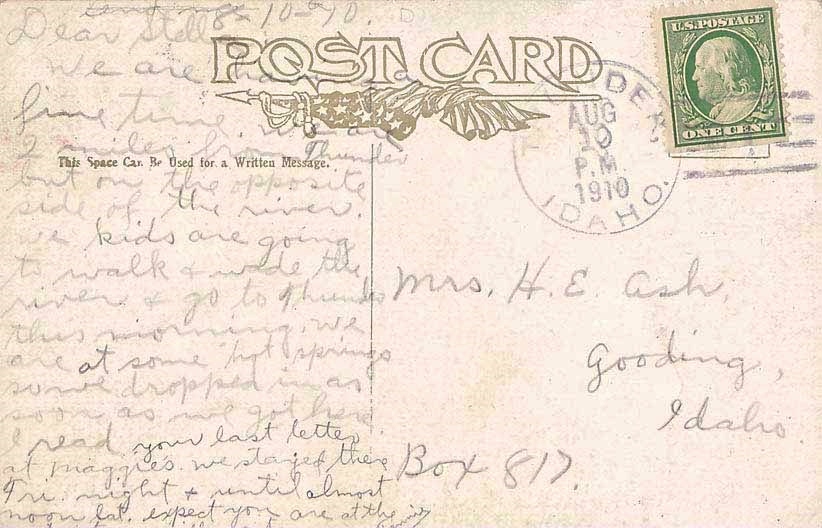 8-10-10.
Dear Stell
POST CARD
We are having a
fine time. We are
2 miles from Thunder
This Space Can Be Used for a Written Message.
but on the opposite
side of the river.
We kids are going
to walk & wade the
river & go to Thunder
this morning. We
are at some hot springs
so we dropped in as
soon as we got here.
I read your last letter
at Maggie's. We stayed there
Fri. night & until almost
noon Sat. expect you are at the
U.S. POSTAGE
ONE CENT
AUG
10
P.M.
1910
IDAHO.
Mrs. H. E. Ash,
Gooding,
Idaho
Box 817.